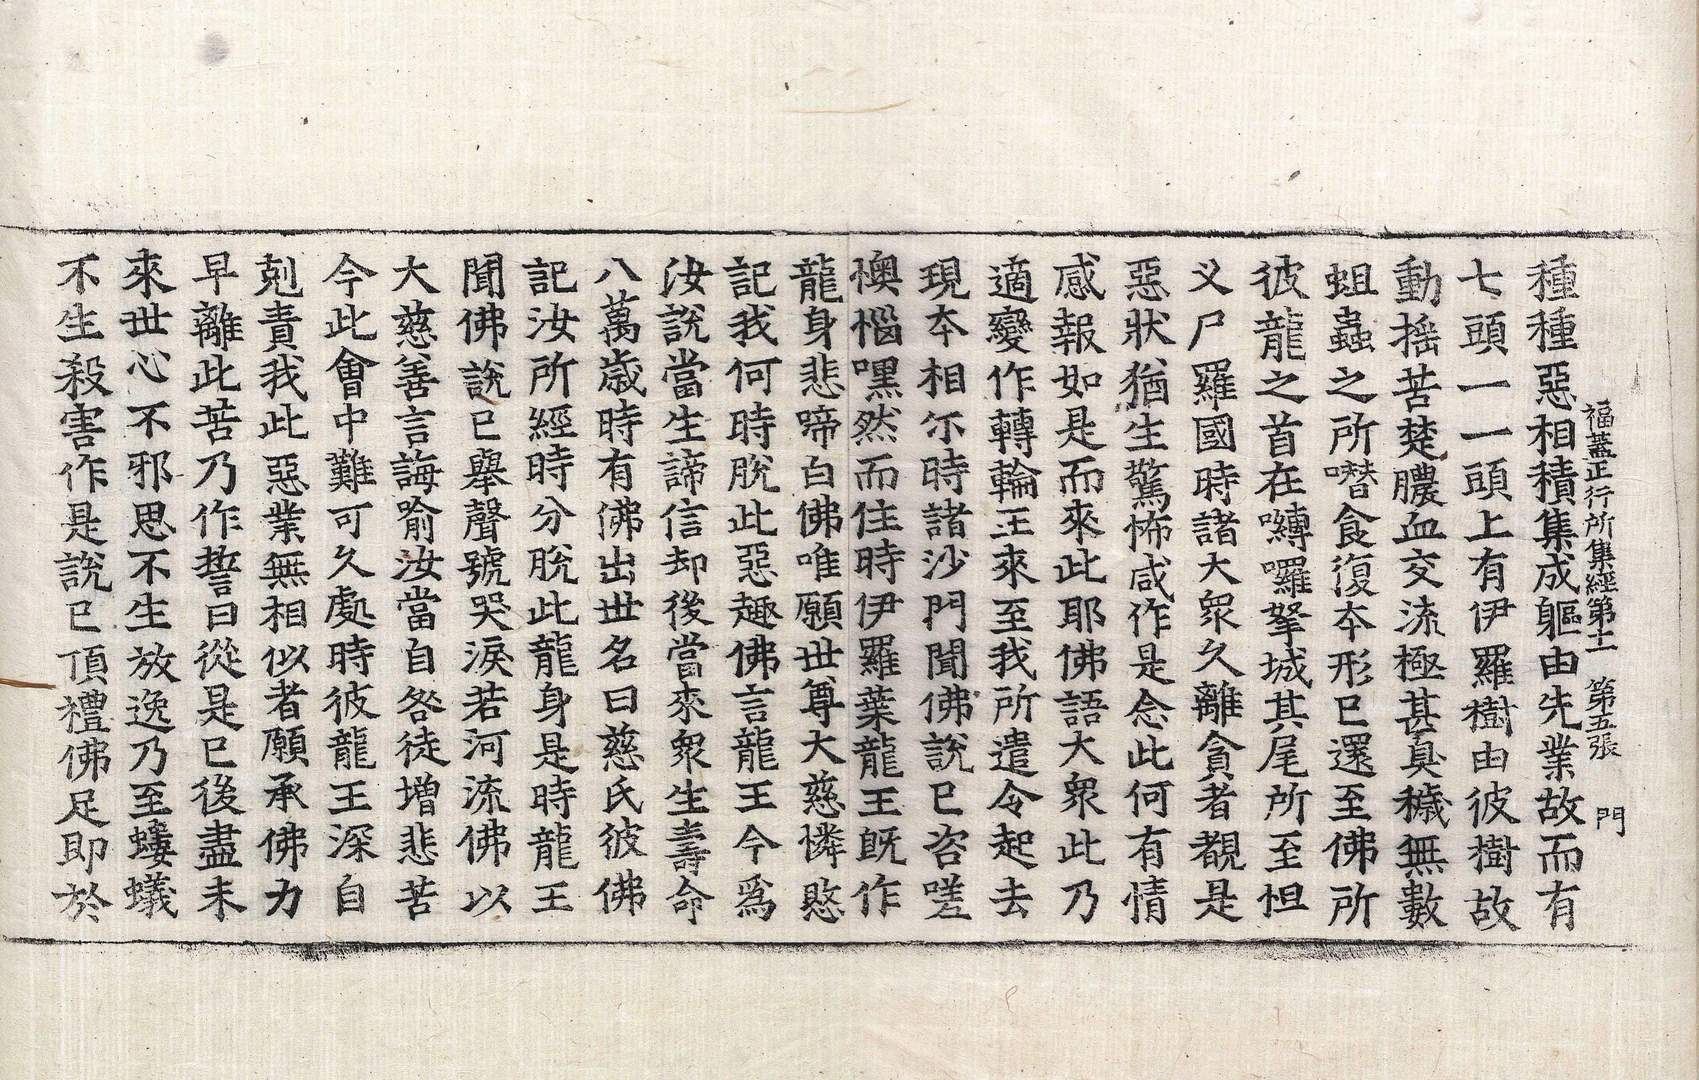 福蓋正行所集經第十一　第五張　門
種種惡相積集成軀由先業故而有
七頭一一頭上有伊羅樹由彼樹故
動搖苦楚膿血交流極甚臭穢無數
蛆蟲之所噆食復本形已還至佛所
彼龍之首在嚩囉拏城其尾所至怛
叉尸羅國時諸大衆久離貪者覩是
惡狀猶生驚怖咸作是念此何有情
感報如是而來此耶佛語大衆此乃
適變作轉輪王來至我所遣令起去
現本相尒時諸沙門聞佛說已咨嗟
懊惱嘿然而住時伊羅葉龍王旣作
龍身悲啼白佛唯願世尊大慈憐愍
記我何時脫此惡趣佛言龍王今爲
汝說當生諦信却後當來衆生壽命
八萬歲時有佛出世名曰慈氏彼佛
記汝所經時分脫此龍身是時龍王
聞佛說已舉聲號哭淚若河流佛以
大慈善言誨喻汝當自咎徒增悲苦
今此會中難可久處時彼龍王深自
剋責我此惡業無相似者願承佛力
早離此苦乃作誓曰從是已後盡未
來世心不邪思不生放逸乃至螻蟻
不生殺害作是說已頂禮佛足即於